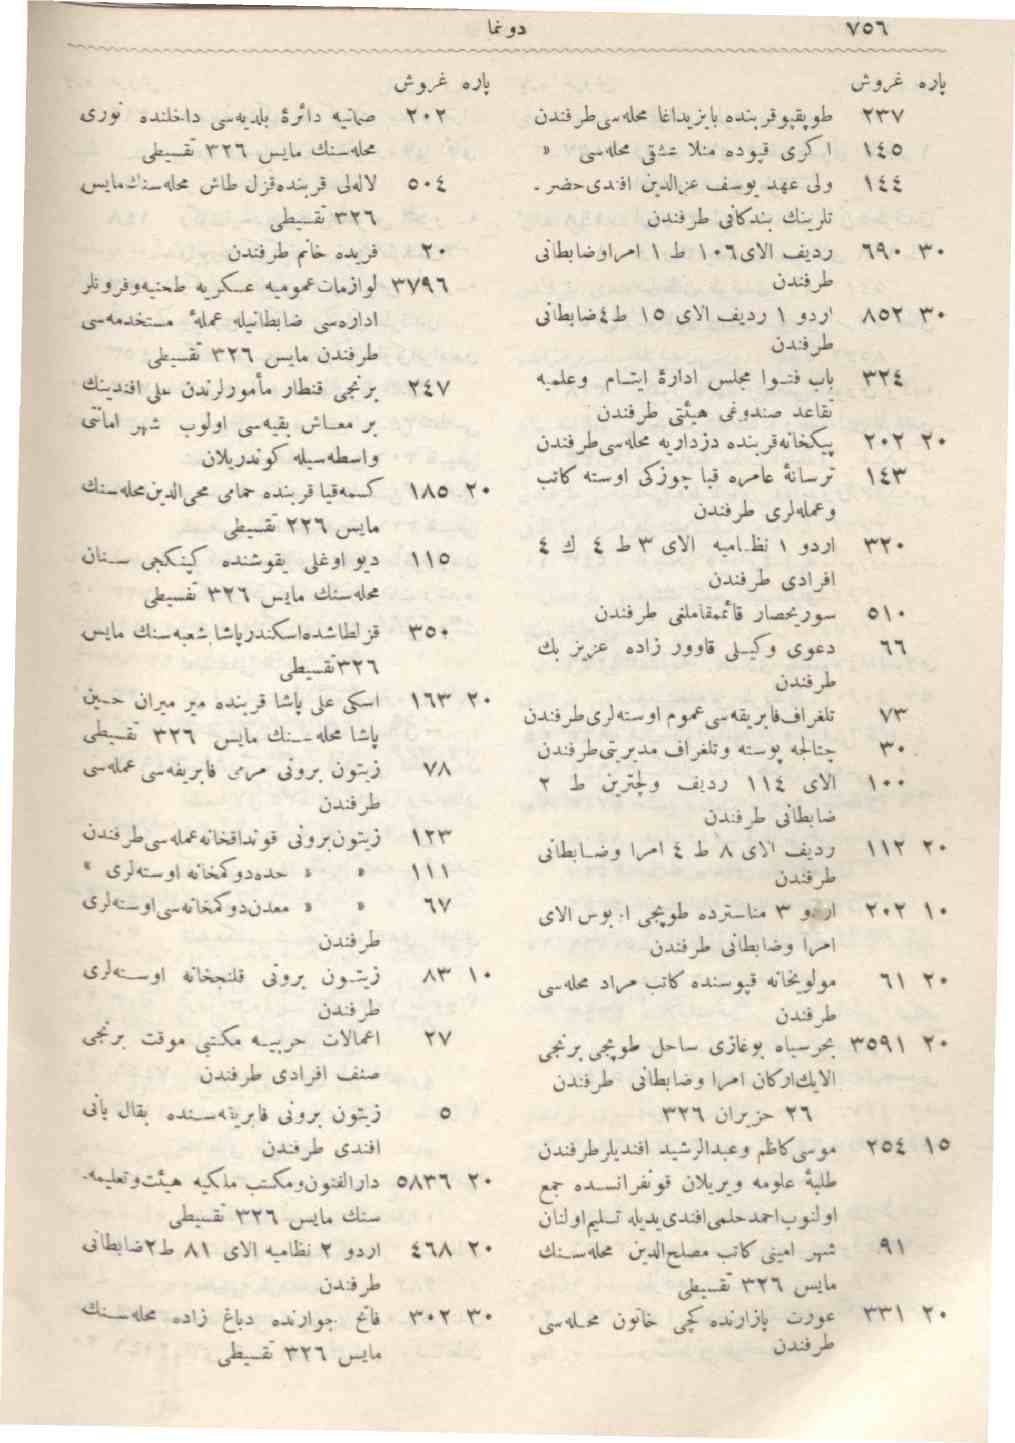 ٧٥٦ دونما
پاره غروش
٢٣٧ طوپقپو قربنده بایزیداغا محله‌سی طرفندن
١٤٥ اکری قپوده منلا عشقی محله‌سی »
١٤٤ ولی عهد یوسف عزالدین افندی حضر-
تلرینك بندکانی طرفندن
٣٠ ٦٩٠ ردیف الای ١٠٦ ط ١ امرا وضابطانی
طرفندن
٣٠ ٨٥٢ اردو ١ ردیف الای ١٥ ط ٤ ضابطانی
طرفندن
٣٢٤ باب فتوا مجلس ادارهٔ ایتام وعلمیه
تقاعد صندوغی هیئتی طرفندن
٢٠ ٢٠٢ پیکخانه قربنده دزداریه محله‌سی طرفندن
١٤٣ ترسانهٔ عامره قبا چوزکی اوسته کاتب
وعمله‌لری طرفندن
٣٢٠ اردو ١ نظامیه الای ٣ ط ٤ ك ٤
افرادی طرفندن
٥١٠ سوریحصار قائممقاملغی طرفندن
٦٦ دعوی وکیلی قاوور زاده عزیز بك
طرفندن
٧٣ تلغراف فابریقه‌سی عموم اوسته‌لری طرفندن
٣٠ چتالجه پوسته وتلغراف مدیرتی طرفندن
١٠٠ الای ١١٤ ردیف ولچترین ط ٢
ضابطانی طرفندن
٢٠ ١١٢ ردیف الای ٨ ط ٤ امرا وضابطانی
طرفندن
١٠ ٢٠٢ اردو ٣ مناسترده طوپچی ا. بوس الای
امرا وضابطانی طرفندن
٢٠ ٦١ مولویخانه قپوسنده کاتب مراد محله‌سی
طرفندن
٢٠ ٣٥٩١ بحرسیاه بوغازی ساحل طوپچی برنجی
الاینك ارکان امرا وضابطانی طرفندن
٢٦ حزیران ٣٢٦
١٥ ٢٥٤ موسی کاظم وعبدالرشید افندیلر طرفندن
طلبهٔ علومه ویریلان قونفرانسده جمع
اولنوب احمد حلمی افندی یدیله تسلیم اولنان
٩١ شهر امینی کاتب مصلح الدین محله‌سنك
مایس ٣٢٦ تقسیطی
٢٠ ٣٣١ عورت پازارنده کچی خاتون محله‌سی
طرفندن
پاره غروش
٢٠٢ صماتیه دائرهٔ بلدیه‌سی داخلنده نوری
محله‌سنك مایس ٣٢٦ تقسیطی
٥٠٤ لاله‌لی قربنده قزل طاش محله‌سنك مایس
٣٢٦ تقسیطی
٢٠ فریده خانم طرفندن
٣٧٩٦ لوازمات عمومیه عسکریه طحنیه وفرونلر
اداره‌سی ضابطانیله عملهٔ مستخدمه‌سی
طرفندن مایس ٣٢٦ تقسیطی
٢٤٧ برنجی قنطار مأمورلرندن علی افندینك
بر معاش بقیه‌سی اولوب شهر امانتی
واسطه‌سیله کوندریلان
٢٠ ١٨٥ کسمه‌قیا قربنده حمامی محی‌الدین محله‌سنك
مایس ٢٢٦ تقسیطی
١١٥ دیو اوغلی یقوشنده کپنکجی سنان
محله‌سنك مایس ٣٢٦ تقسیطی
٣٥٠ قزلطاشده اسکندر پاشا شعبه‌سنك مایس
٣٢٦ تقسیطی
٢٠ ١٦٣ اسکی علی پاشا قربنده میر میران حسین
پاشا محله‌سنك مایس ٣٢٦ تقسیطی
٧٨ زیتون برونی مرمی فابریقه‌سی عمله‌سی
طرفندن
١٢٣ زیتون برونی قونداقخانه عمله‌سی طرفندن
١١١ » » حده دوکمخانه اوسته‌لری »
٦٧ » » معدن دوکمخانه‌سی اوسته‌لری
طرفندن
١٠ ٨٣ زیتون برونی قلنجخانه اوسته‌لری
طرفندن
٢٧ اعمالات حربیه مکتبی موقت برنجی
صنف افرادی طرفندن
٥ زیتون برونی فابریقه‌سنده بقال یانی
افندی طرفندن
٢٠ ٥٨٣٦ دارالفنون ومکتب ملکیه هیئت وتعلیمه-
سنك مایس ٣٢٦ تقسیطی
٢٠ ٤٦٨ اردو ٢ نظامیه الای ٨١ ط ٢ ضابطانی
طرفندن
٣٠ ٣٠٢ فاتح جوارنده دباغ زاده محله‌سنك
مایس ٣٢٦ تقسیطی